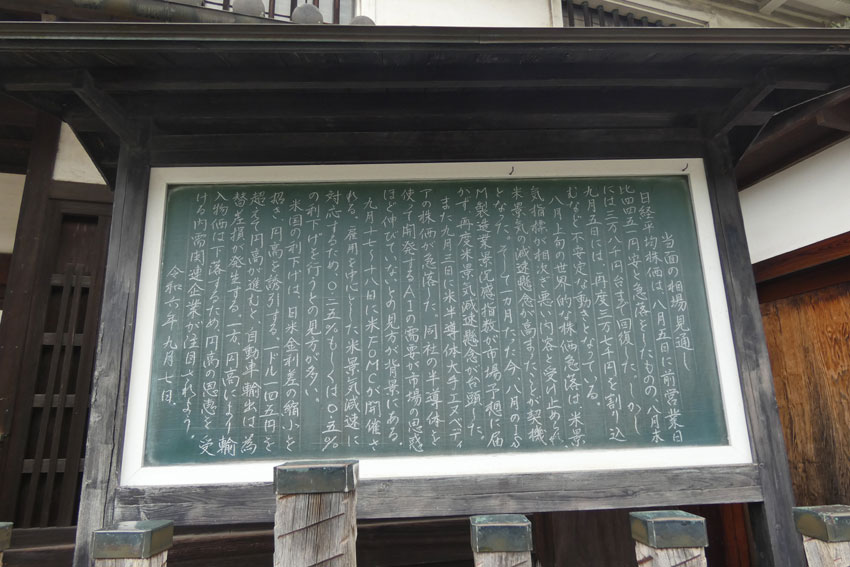 当面の相場見通し
日経平均株価は、八月五日に前営業日
比四四五一円安と急落をしたものの、八月末
には三万八千円台まで回復した。しかし
九月五日には、再度三万七千円を割り込
むなど不安定な動きとなっている。
八月上旬の世界的な株価急落は、米景
気指標が相次ぎ悪い内容と受け止められ
米景気の減速懸念が高まったことが契機
となった。そして一カ月たった今、八月のIS
M製造業景況感指数が市場予想に届
かず、再度米景気減速懸念が台頭した。
また九月三日に米半導体大手エヌベディ
アの株価が急落した。同社の半導体を
使って開発するAIの需要が市場の思惑
ほど伸びていないとの見方が背景にある。
九月十七〜十八日に米FOMCが開催さ
れる。雇用を中心とした米景気減速に
対応するため、〇・二五%もしくは〇・五%
の利下げを行うとの見方が多い。
米国の利下げは、日米金利差の縮小を
招き、円高を誘引する。一ドル一四五円を
超えて円高が進むと、自動車輸出は、為
替差損が発生する。一方、円高により輸
入物価は下落するため、円高の恩恵を受
ける内需関連企業が注目されよう。
令和六年 九月七日、